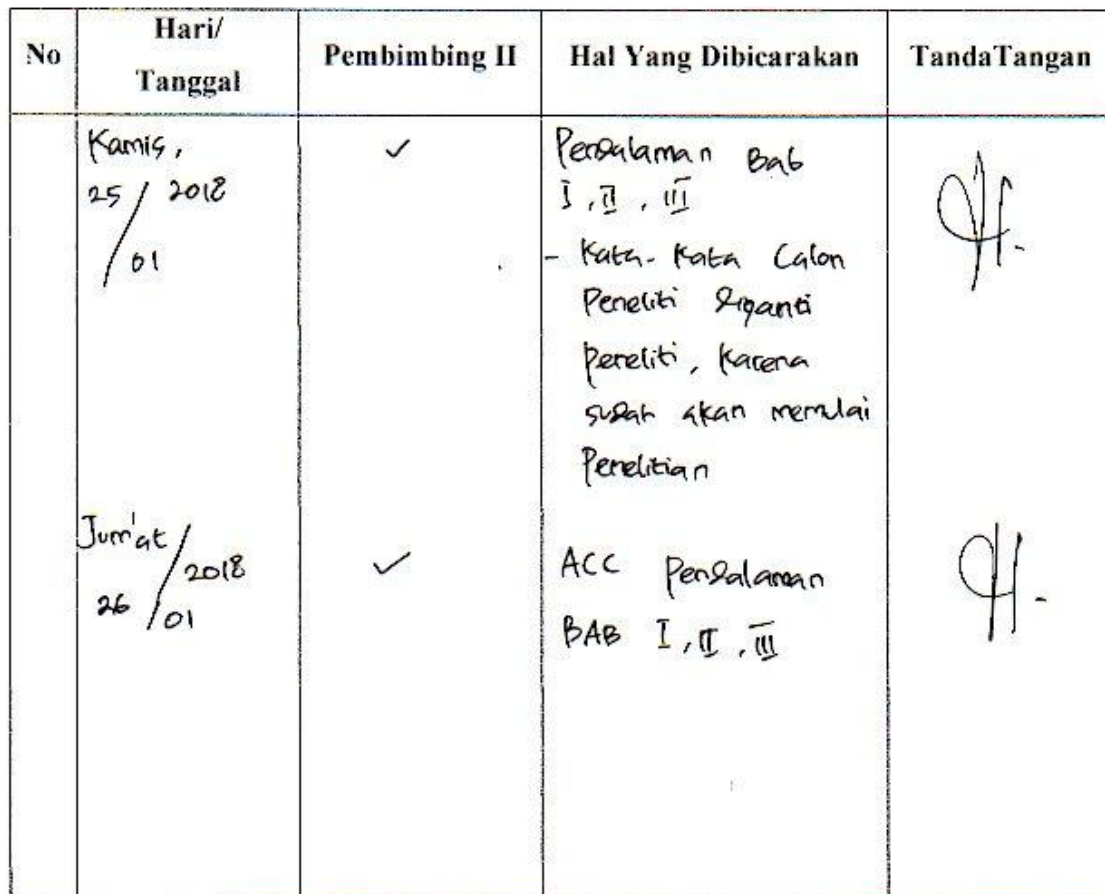 No
Hari/
Tanggal
Pembimbing II
Hal Yang Dibicarakan
TandaTangan
Kamis,
25/01 2018
✓
Pendalaman Bab
I, II, III
- Kata-Kata Calon
Peneliti diganti
Peneliti, Karena
sudah akan memulai
Penelitian
Jum'at
26/01 2018
✓
ACC Pendalaman
BAB I, II, III